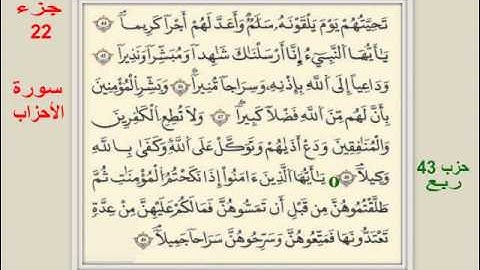 جزء
22
سورة
الأحزاب
تَحِيَّتُهُمْ يَوْمَ يَلْقَوْنَهُۥ سَلَٰمٌ وَأَعَدَّ لَهُمْ أَجْرًا كَرِيمًا ٤٤
يَٰٓأَيُّهَا ٱلنَّبِىُّ إِنَّآ أَرْسَلْنَٰكَ شَٰهِدًا وَمُبَشِّرًا وَنَذِيرًا ٤٥
وَدَاعِيًا إِلَى ٱللَّهِ بِإِذْنِهِۦ وَسِرَاجًا مُّنِيرًا ٤٦ وَبَشِّرِ ٱلْمُؤْمِنِينَ
بِأَنَّ لَهُم مِّنَ ٱللَّهِ فَضْلًا كَبِيرًا ٤٧ وَلَا تُطِعِ ٱلْكَٰفِرِينَ
وَٱلْمُنَٰفِقِينَ وَدَعْ أَذَىٰهُمْ وَتَوَكَّلْ عَلَى ٱللَّهِ وَكَفَىٰ بِٱللَّهِ
وَكِيلًا ٤٨ يَٰٓأَيُّهَا ٱلَّذِينَ ءَامَنُوٓا۟ إِذَا نَكَحْتُمُ ٱلْمُؤْمِنَٰتِ ثُمَّ
طَلَّقْتُمُوهُنَّ مِن قَبْلِ أَن تَمَسُّوهُنَّ فَمَا لَكُمْ عَلَيْهِنَّ مِنْ عِدَّةٍ
تَعْتَدُّونَهَا فَمَتِّعُوهُنَّ وَسَرِّحُوهُنَّ سَرَاحًا جَمِيلًا ٤٩
حزب 43
ربع